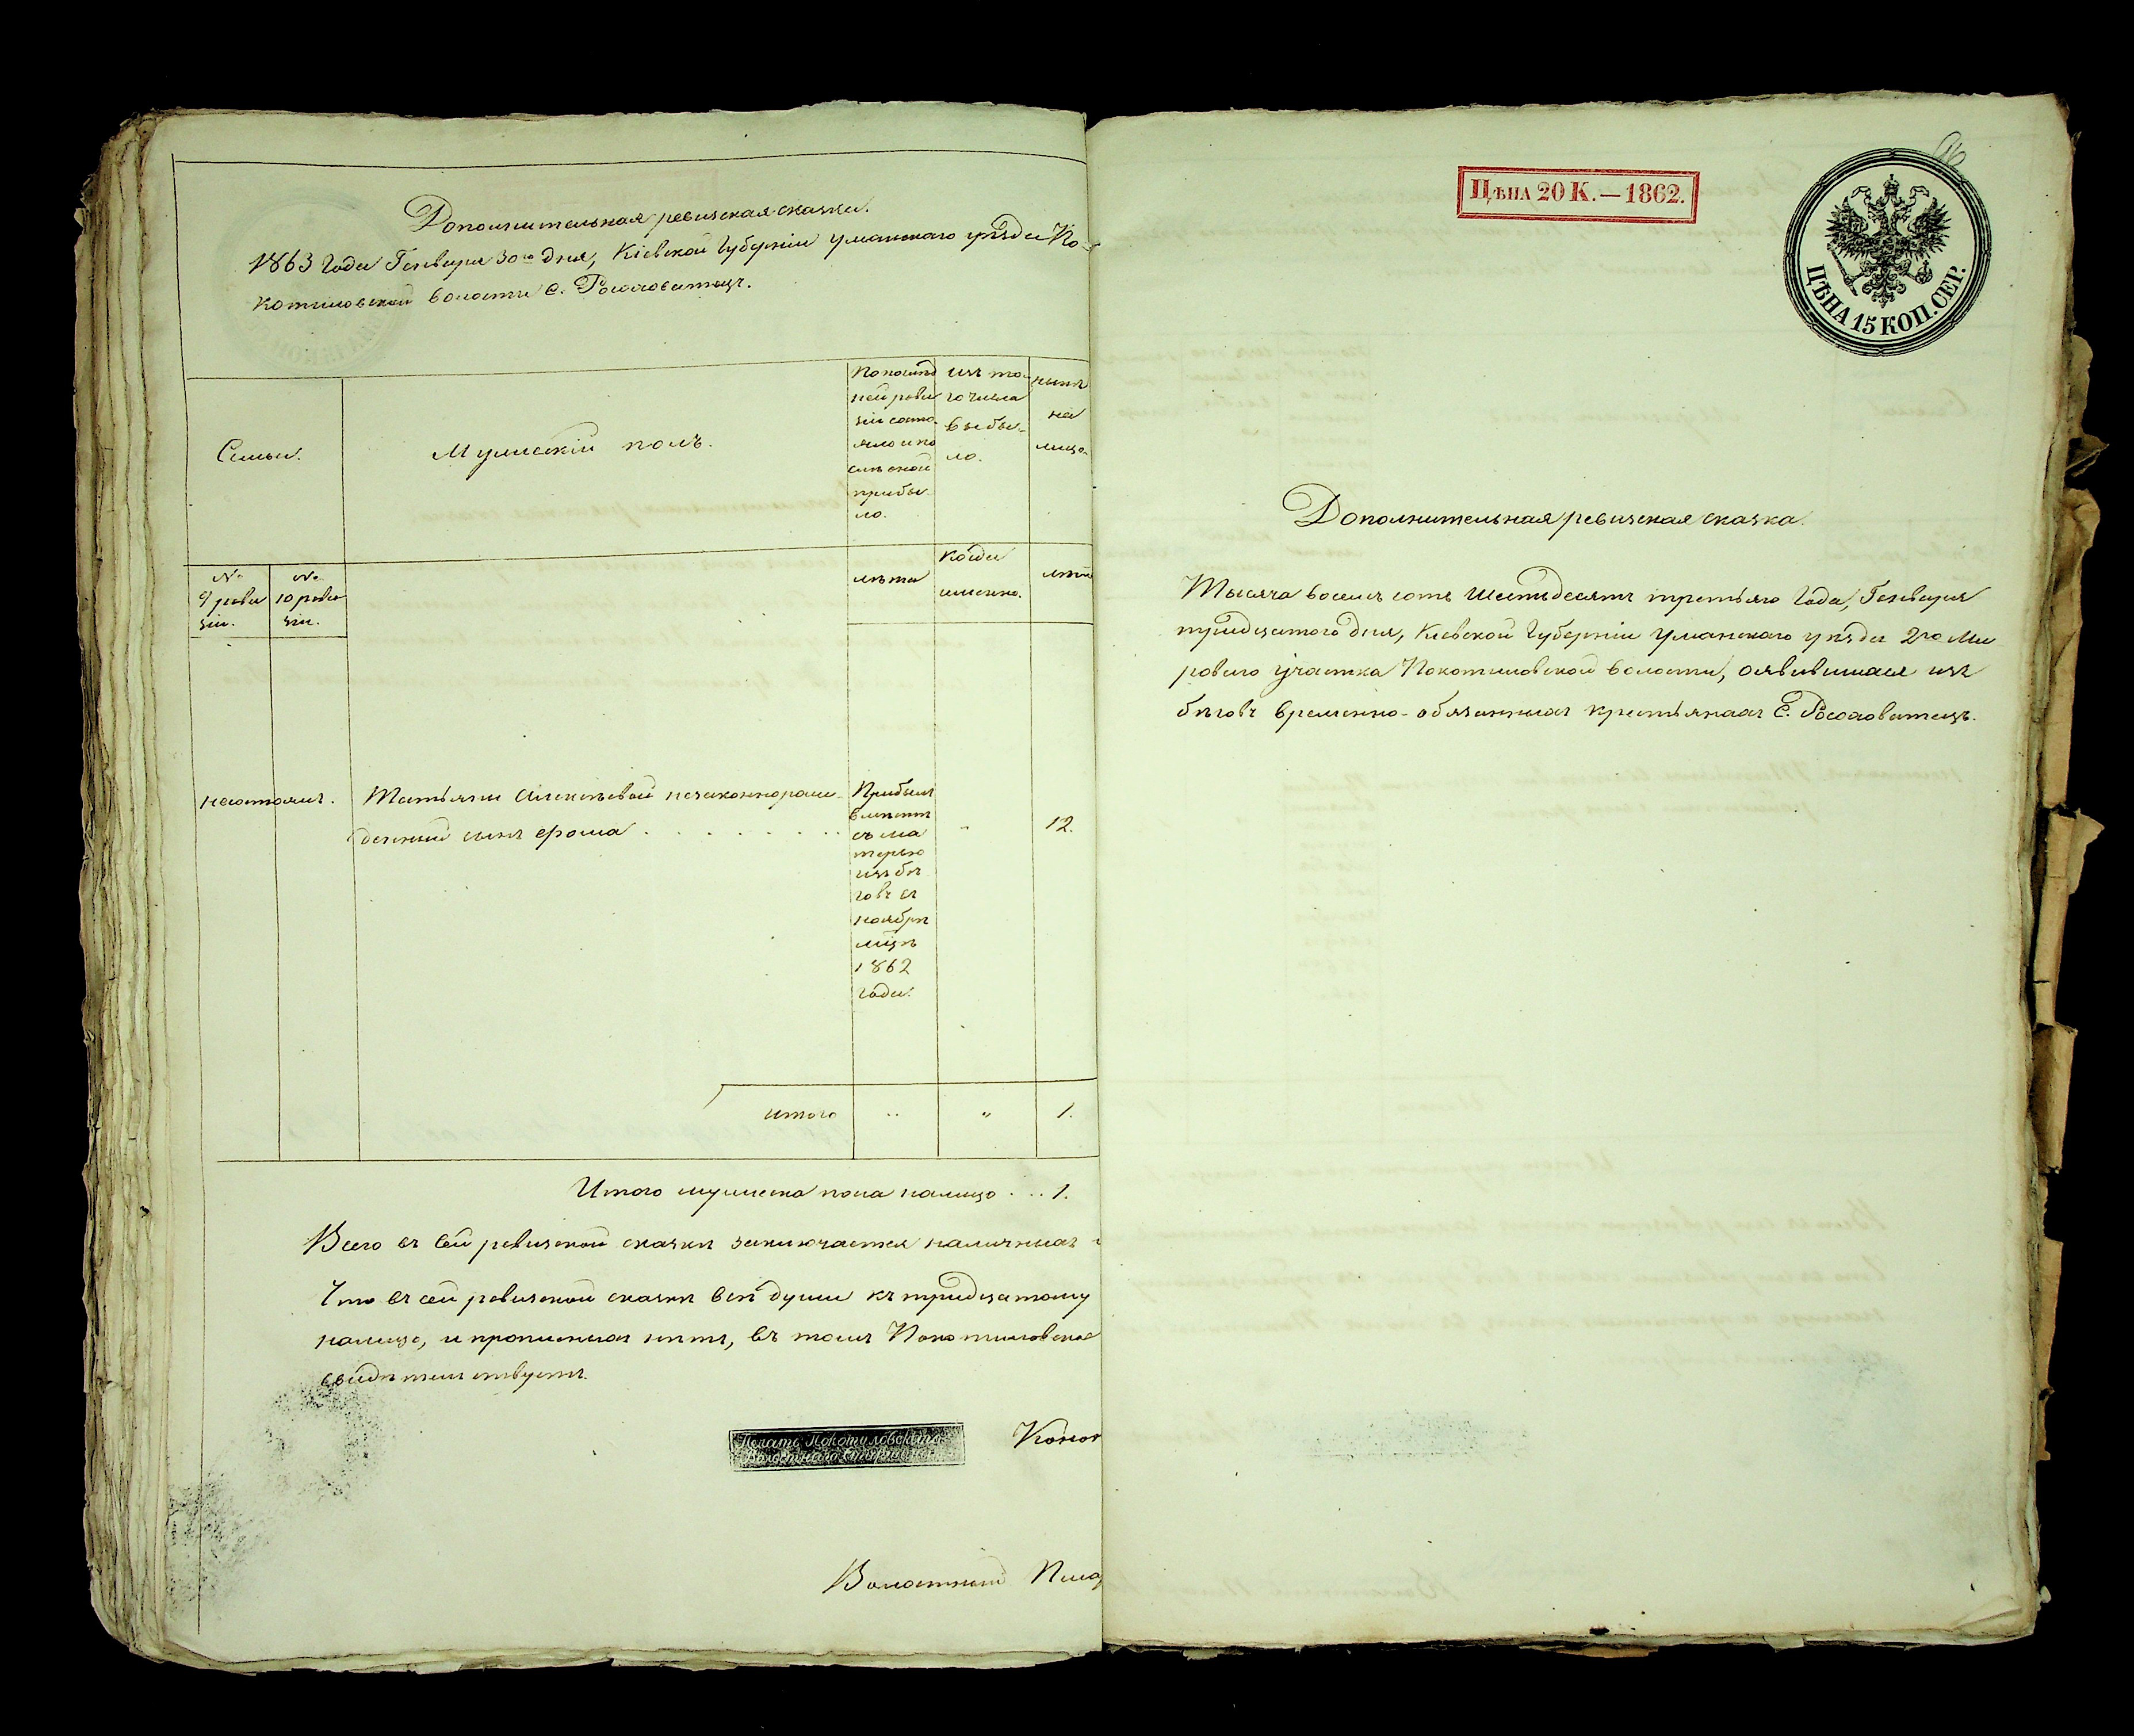 Дополнительная ревизская сказка.
1863 Года Генваря 30го дня, Кіевской Губерніи Уманскаго уѣзда По-
котиловской волости С. Россоховатецъ.
Семьи.
Мужескій полъ.
По послѣд
ней реви
зіи состо
яло и по
слѣ оной
прибы
ло.
изъ то-
го числа
выбы-
ло.
нынѣ
на
лицо.
№
9 реви
зіи.
№
10 реви
зіи.
лѣта
когда
именно.
лѣта
несостоялъ.
Татьяны Алексѣевой незаконнорож-
денный сынъ Фома
12.
Прибылъ
вмѣстѣ
съ ма
терью
изъ бѣ
говъ въ
ноябрѣ
мцѣ
1862
года.
итого " " 1.
Итого мужеска пола налицо . . . 1.
Всего въ сей ревизской сказкѣ заключается наличныхъ
Что въ сей ревизской сказкѣ всѣ души къ тридцатому
налицо, и прописныхъ нѣтъ, въ томъ Покотиловское
свидѣтельствуетъ.
Печать Покотиловскаго
Волостнаго Старшины
Конон
Волостный Писар
Цѣна 20 К. — 1862.
ЦѢНА 15 КОП. СЕР.
Дополнительная ревизская сказка.
Тысяча восемь сотъ шестьдесятъ третьяго Года, Генваря
тридцатого дня, Кіевской Губерніи Уманскаго уѣзда 2го Ми
роваго участка Покотиловской волости, о явившихся изъ
бѣговъ временно-обязанныхъ крестьянахъ С. Россоховатецъ.